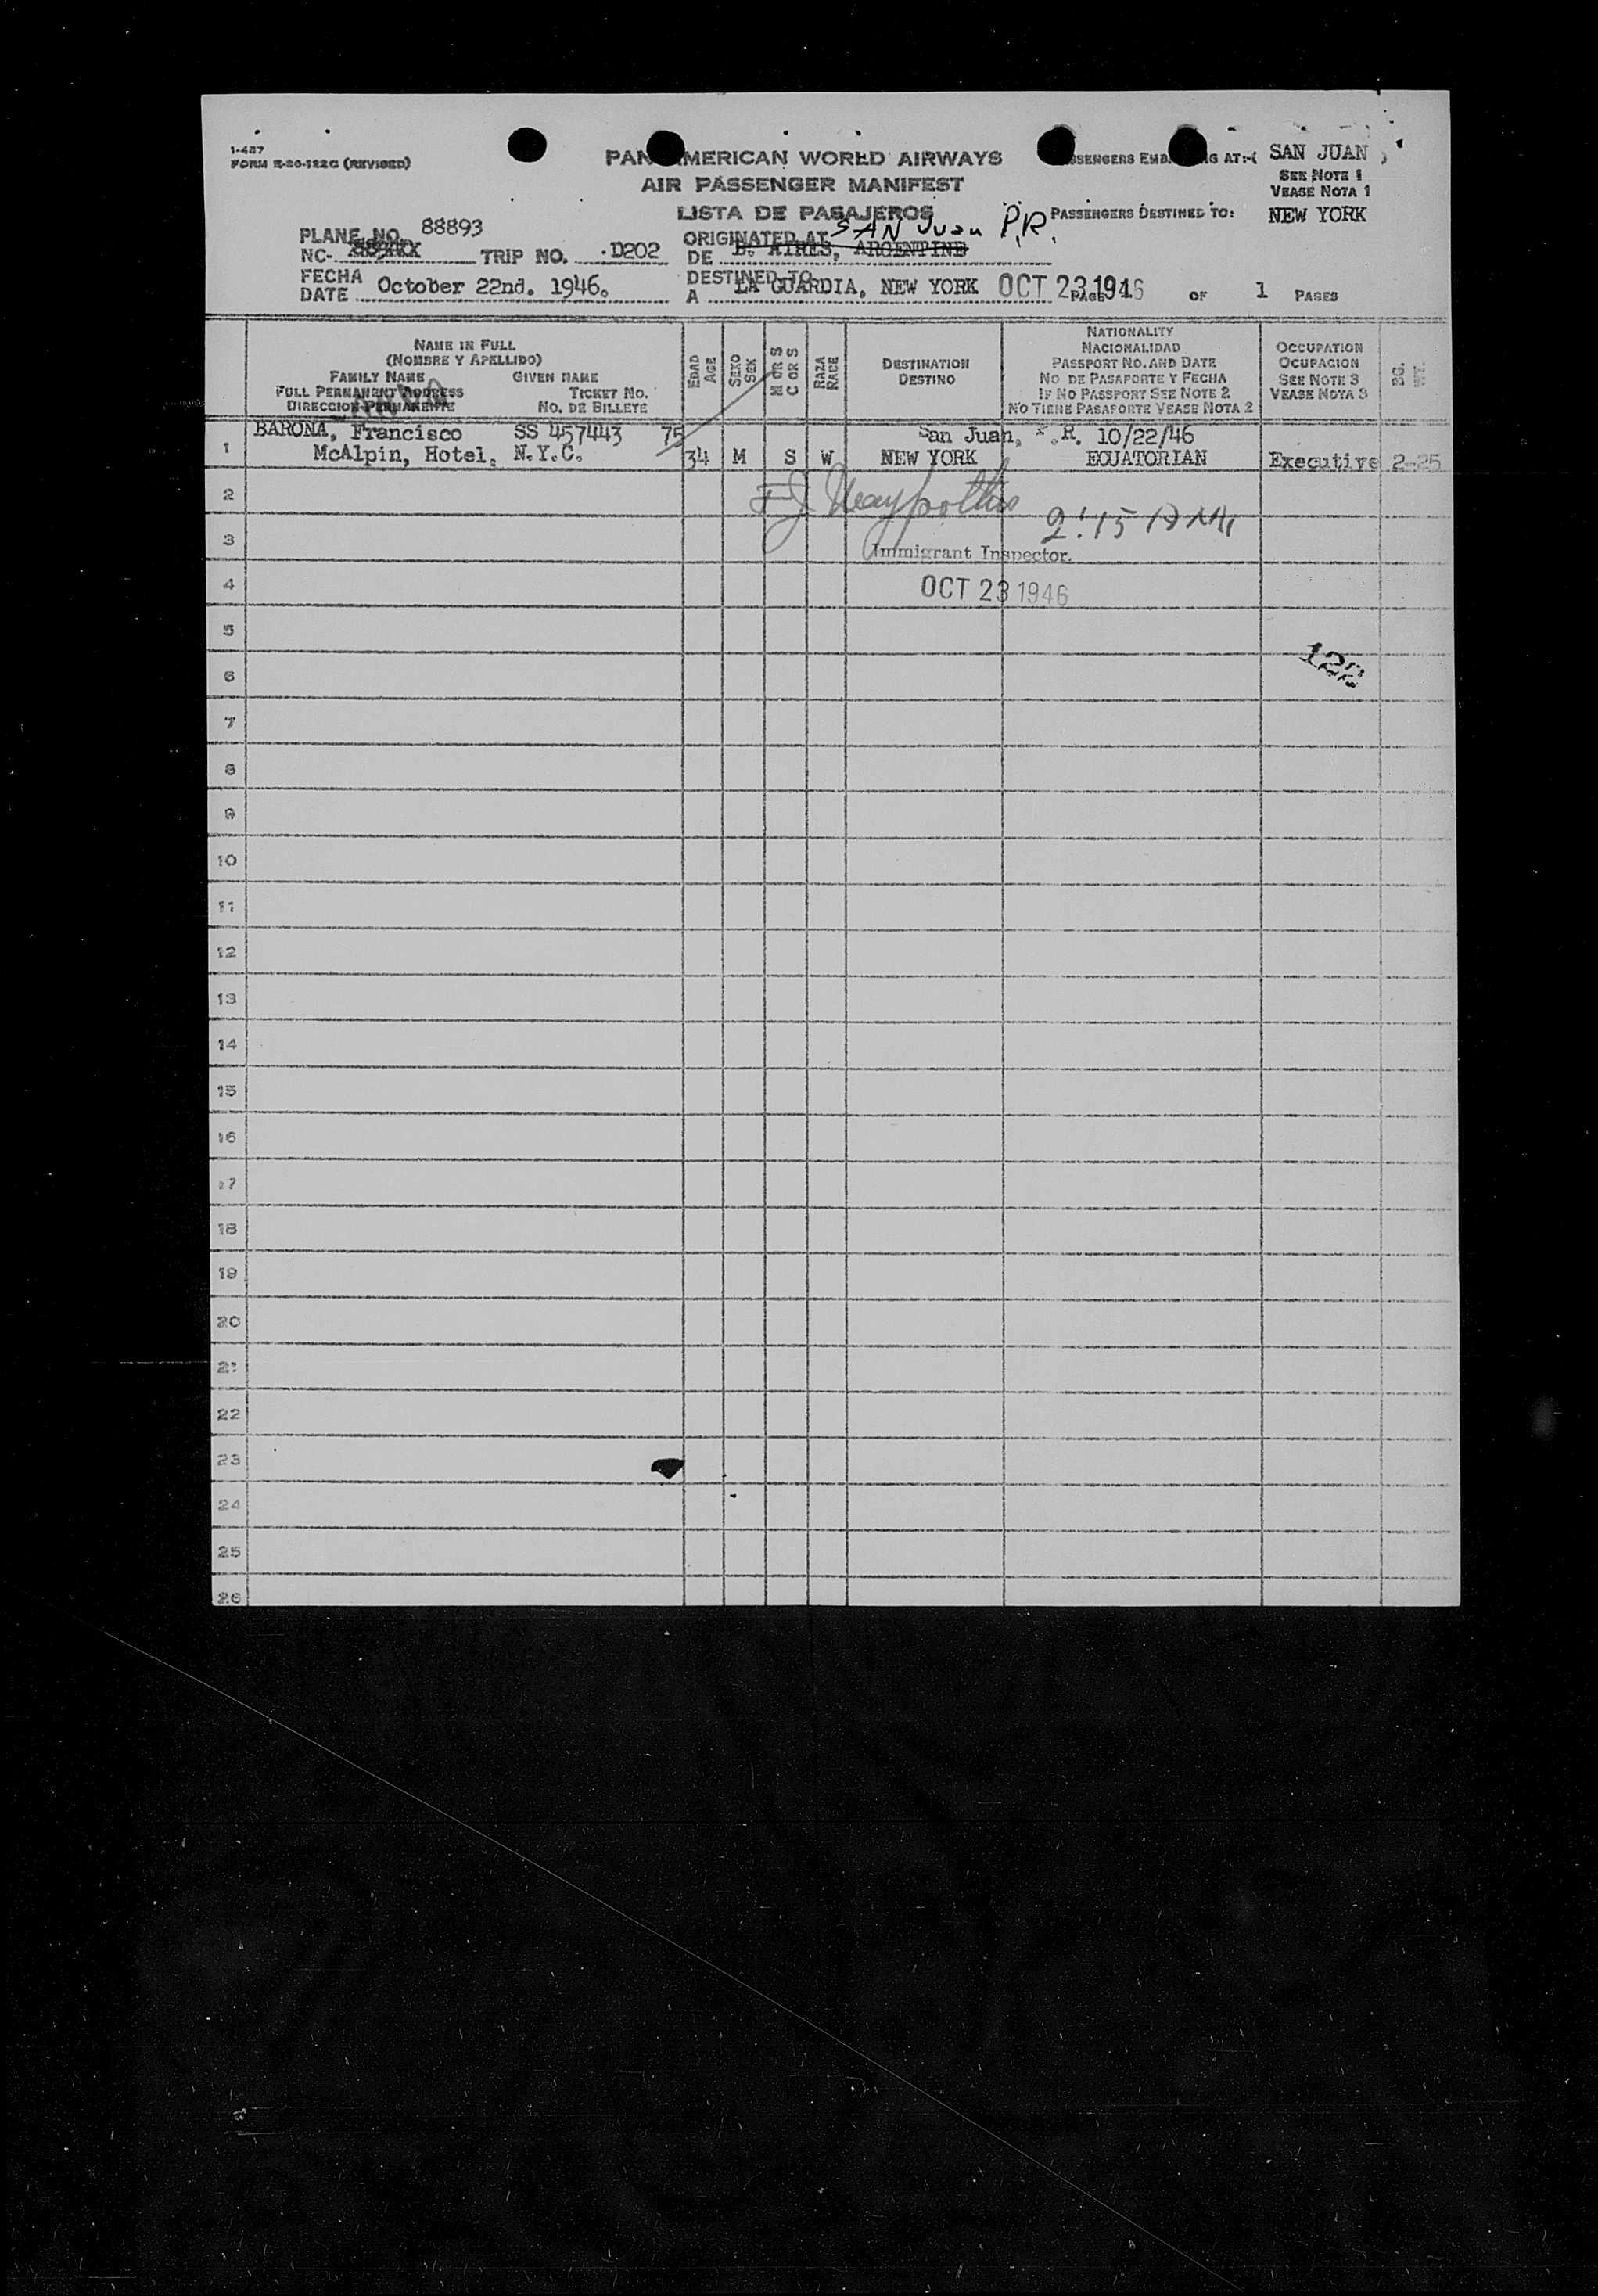 1-487
FORM E-26-122G (REVISED)
PAN AMERICAN WORLD AIRWAYS
AIR PASSENGER MANIFEST
LISTA DE PASAJEROS
PASSENGERS EMBARKING AT:-( SAN JUAN )
SEE NOTE 1
VEASE NOTA 1
PASSENGERS DESTINED TO: NEW YORK
PLANE NO. 88893
NC- TRIP NO. D202
ORIGINATED AT SAN Juan P.R.
DE B. AIRES, ARGENTINE
FECHA
DATE October 22nd. 1946.
DESTINED TO
A LA GUARDIA, NEW YORK OCT 23 1946
PAGE 1 OF 1 PAGES
NAME IN FULL
(NOMBRE Y APELLIDO)
FAMILY NAME GIVEN NAME
FULL PERMANENT ADDRESS TICKET NO.
DIRECCION PERMANENTE NO. DE BILLETE
EDAD
AGE
SEXO
SEX
M OR S
C OR S
RAZA
RACE
DESTINATION
DESTINO
NATIONALITY
NACIONALIDAD
PASSPORT NO. AND DATE
NO. DE PASAPORTE Y FECHA
IF NO PASSPORT SEE NOTE 2
NO TIENE PASAPORTE VEASE NOTA 2
OCCUPATION
OCUPACION
SEE NOTE 3
VEASE NOTA 3
BG.
WT.
BARONA, Francisco SS 457443 75 San Juan, P.R. 10/22/46
1 McAlpin, Hotel, N.Y.C. 34 M S W NEW YORK ECUATORIAN Executive 2-25
2
3 2:15 AM
Immigrant Inspector.
4 OCT 23 1946
5
122
6
7
8
9
10
11
12
13
14
15
16
17
18
19
20
21
22
23
24
25
26